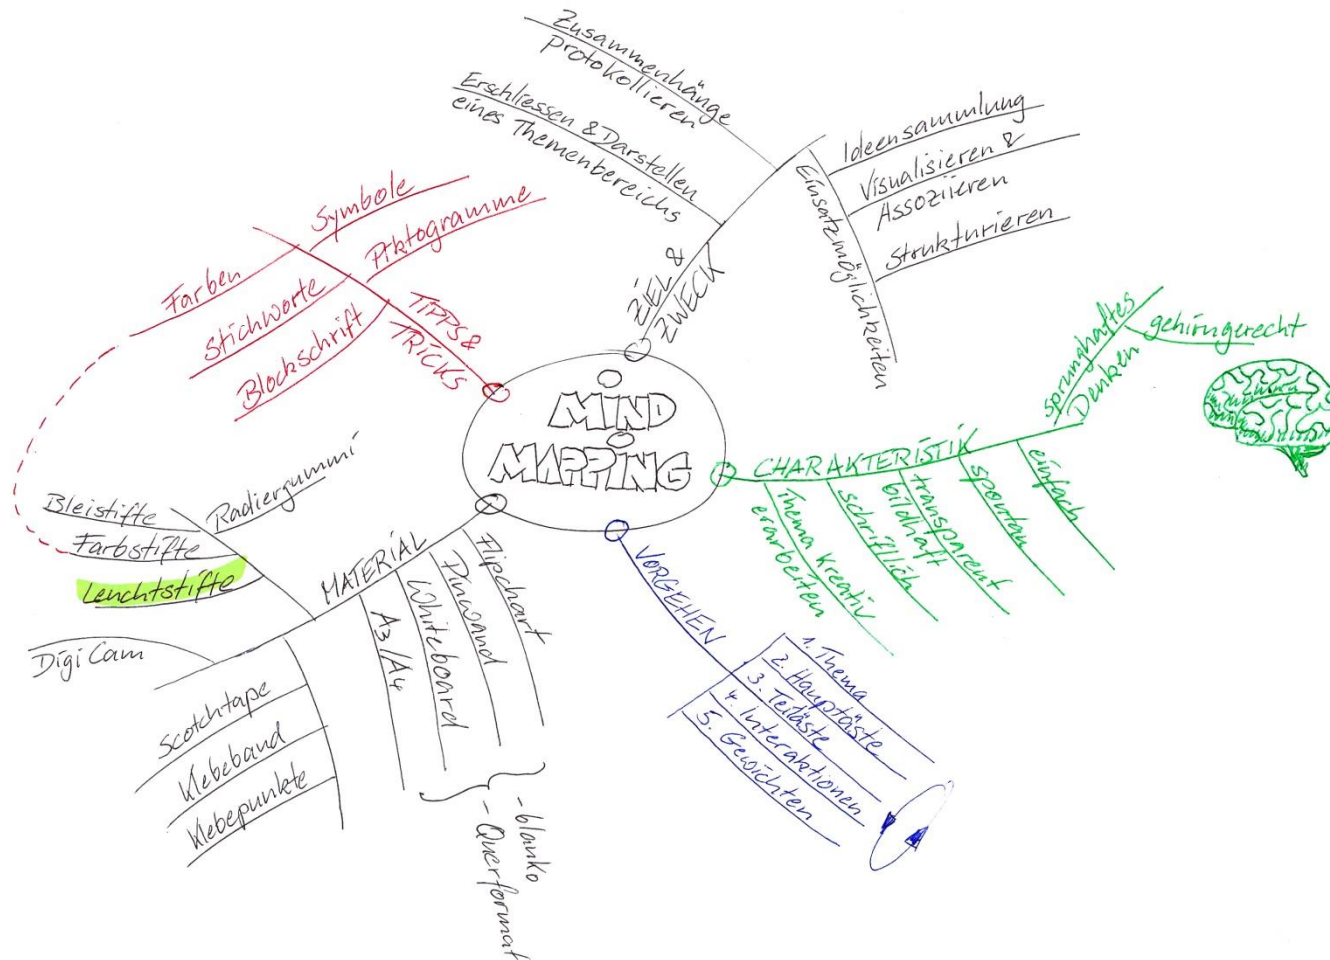 MIND
MAPPING
ZIEL &
ZWECK
Zusammenhänge
protokollieren
Erschliessen & Darstellen
eines Themenbereichs
Einsatzmöglichkeiten
Ideensammlung
Visualisieren &
Assoziieren
Strukturieren
CHARAKTERISTIK
sprunghaftes
Denken
gehirngerecht
einfach
spontan
transparent
bildhaft
schriftlich
Thema kreativ
erarbeiten
VORGEHEN
1. Thema
2. Hauptäste
3. Teiläste
4. Interaktionen
5. Gewichten
MATERIAL
Flipchart
Pinwand
Whiteboard
A3/A4
- blanko
- Querformat
Radiergummi
Bleistifte
Farbstifte
Leuchtstifte
DigiCam
Scotchtape
Klebeband
Klebepunkte
TIPPS &
TRICKS
Symbole
Piktogramme
Farben
Stichworte
Blockschrift